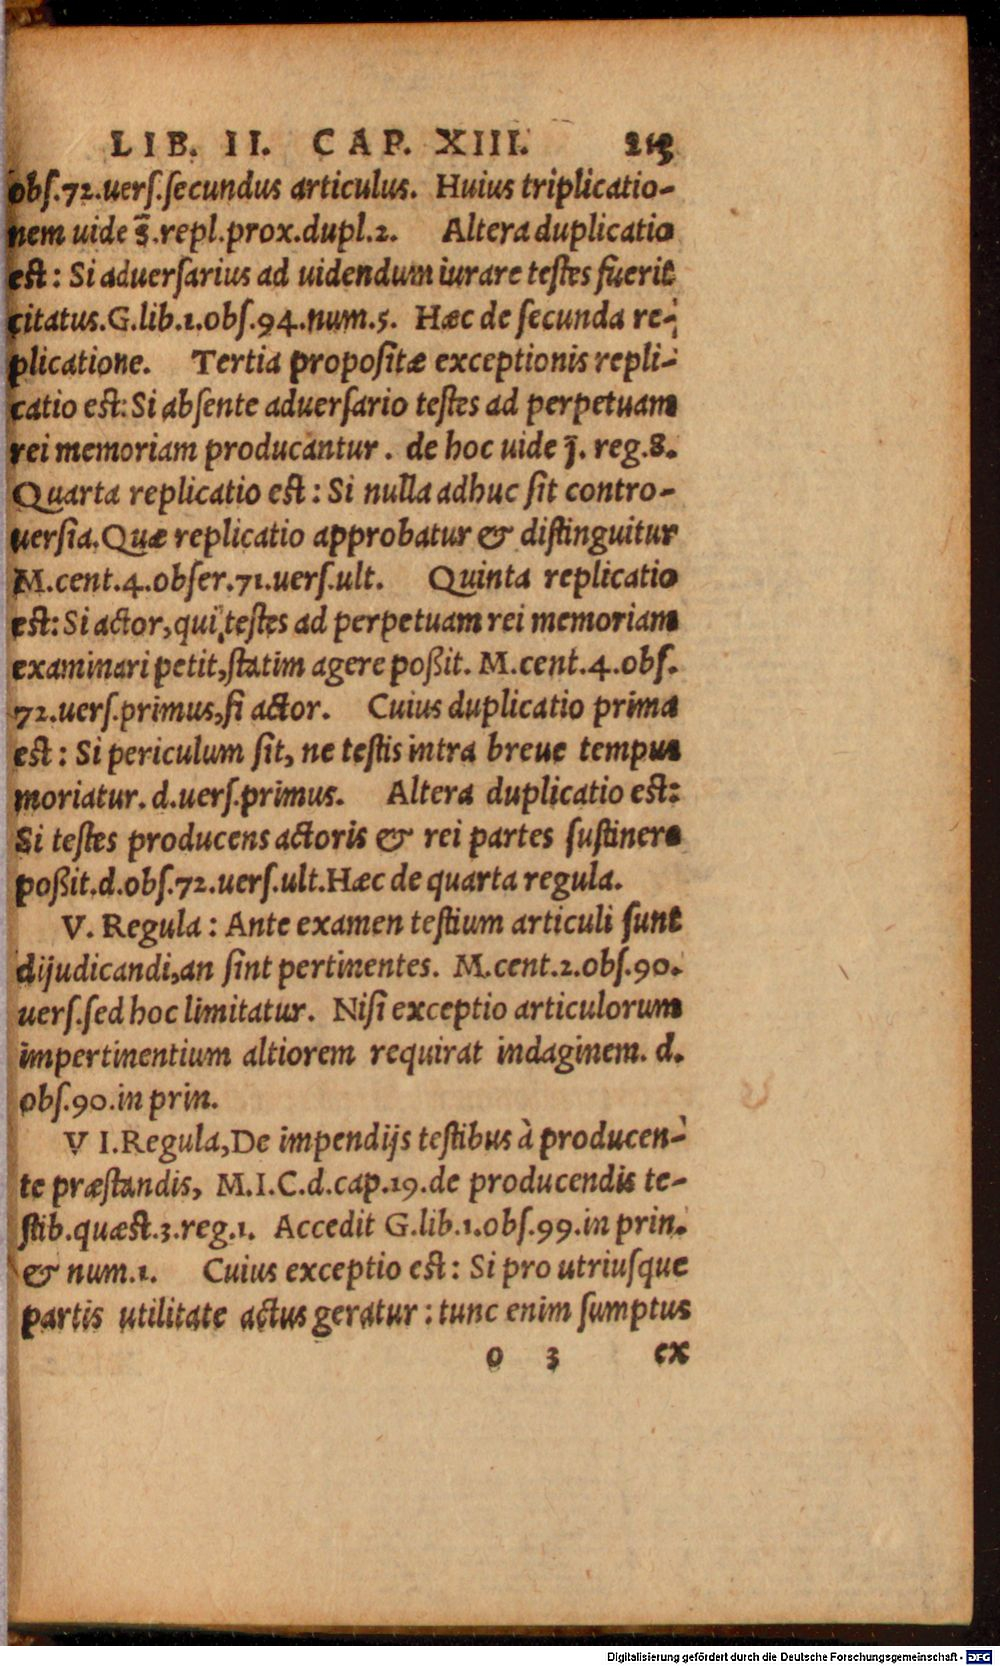 LIB. II. CAP. XIII. 213
obſ.72.uerſ.ſecundus articulus. Huius triplicatio-
nem uide s̄.repl.prox.dupl.2. Altera duplicatio
est: Si aduerſarius ad uidendum iurare teſtes fuerit
citatus.G.lib.1.obſ.94.num.5. Hæc de ſecunda re-
plicatione. Tertia propoſitæ exceptionis repli-
catio est: Si abſente aduerſario teſtes ad perpetuam
rei memoriam producantur. de hoc uide j̄. reg.8.
Quarta replicatio est: Si nulla adhuc ſit contro-
uerſia.Quæ replicatio approbatur & diſtinguitur
M.cent.4.obſer.71.uerſ.ult. Quinta replicatio
est: Si actor, qui teſtes ad perpetuam rei memoriam
examinari petit,ſtatim agere poßit. M.cent.4.obſ.
72.uerſ.primus,ſi actor. Cuius duplicatio prima
est: Si periculum ſit, ne teſtis intra breue tempus
moriatur. d.uerſ.primus. Altera duplicatio est:
Si teſtes producens actoris & rei partes ſuſtinere
poßit.d.obſ.72.uerſ.ult.Hæc de quarta regula.
V. Regula: Ante examen teſtium articuli ſunt
dijudicandi,an ſint pertinentes. M.cent.2.obſ.90.
uerſ.ſed hoc limitatur. Niſi exceptio articulorum
impertinentium altiorem requirat indaginem. d.
obſ.90.in prin.
VI.Regula,De impendijs teſtibus à producen-
te præſtandis, M.I.C.d.cap.19.de producendis te-
ſtib.quæst.3.reg.1. Accedit G.lib.1.obſ.99.in prin.
& num.1. Cuius exceptio est: Si pro utriuſque
partis utilitate actus geratur: tunc enim ſumptus
o 3 ex
Digitalisierung gefördert durch die Deutsche Forschungsgemeinschaft - DFG